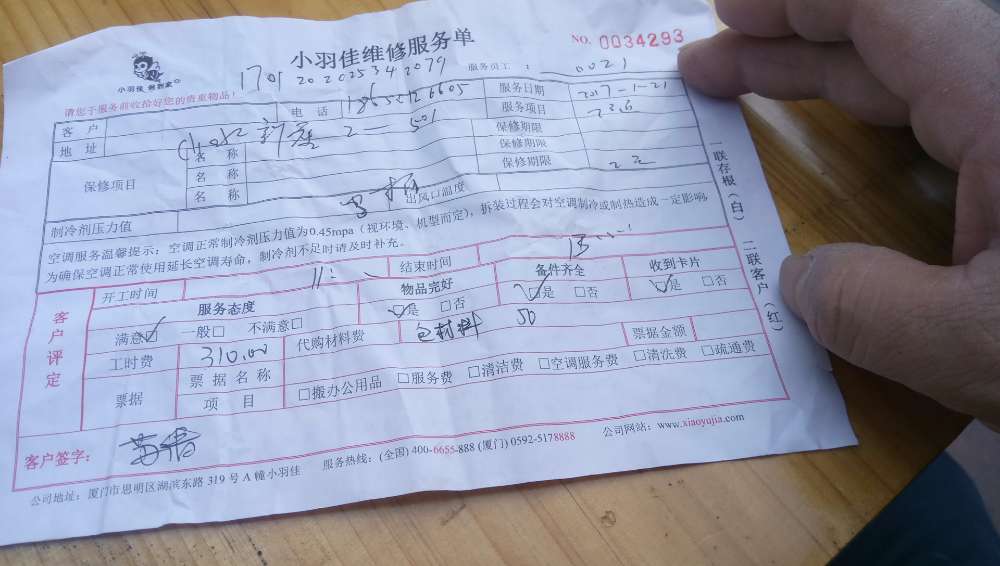 小羽佳维修服务单
NO. 0034293
小羽佳 到到家
服务员工： 0021
请您于服务前收拾好您的贵重物品！
客 户 电 话 服务日期 2017-1-21
地 址 2-501 服务项目
保修项目 名 称 保修期限
名 称 保修期限
名 称 保修期限
制冷剂压力值 出风口温度
空调服务温馨提示：空调正常制冷剂压力值为0.45mpa（视环境、机型而定），拆装过程会对空调制冷或制热造成一定影响，
为确保空调正常使用延长空调寿命，制冷剂不足时请及时补充。
客户评定
开工时间 11： 结束时间 13
服务态度 物品完好 备件齐全 收到卡片
满意☑ 一般□ 不满意□ ☑是 □否 ☑是 □否 ☑是 □否
工时费 310.00 代购材料费 包材料 50 票据金额
票据 票 据 名 称
项 目 □搬办公用品 □服务费 □清洁费 □空调服务费 □清洗费 □疏通费
客户签字：
公司地址：厦门市思明区湖滨东路 319 号 A 幢小羽佳 服务热线：(全国) 400-6655-888 (厦门) 0592-5178888 公司网站：www.xiaoyujia.com
一联存根（白） 二联客户（红）